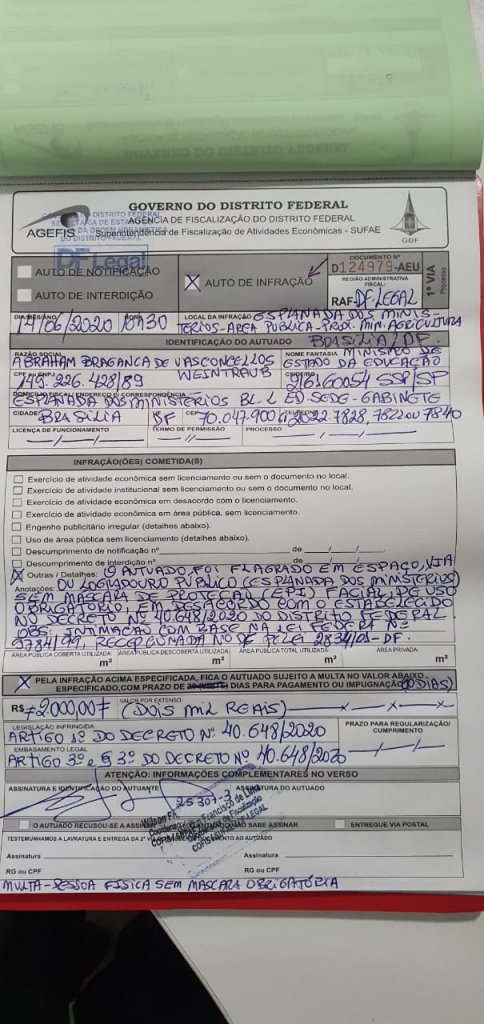 GOVERNO DO DISTRITO FEDERAL
AGÊNCIA DE FISCALIZAÇÃO DO DISTRITO FEDERAL
Superintendência de Fiscalização de Atividades Econômicas - SUFAE
AGEFIS
GDF
DF Legal
AUTO DE NOTIFICAÇÃO
AUTO DE INTERDIÇÃO
X AUTO DE INFRAÇÃO
DOCUMENTO Nº
D124979-AEU
REGIÃO ADMINISTRATIVA FISCAL:
RAF-DF LEGAL
1ª VIA
Processo
14/06/2020
10H30
LOCAL DA INFRAÇÃO ESPLANADA DOS MINIS-
TÉRIOS-AREA PUBLICA-PROX. MIN. AGRICULTURA
BRASÍLIA/DF.
IDENTIFICAÇÃO DO AUTUADO
RAZÃO SOCIAL
ABRAHAM BRAGANCA DE VASCONCELLOS
WEINTRAUB
NOME FANTASIA MINISTRO DE
ESTADO DA EDUCAÇÃO
ESPLANADA DOS MINISTÉRIOS BL. L ED. SEDE - GABINETE
CIDADE
BRASILIA
DF
CEP
70.047-900
2022 7828, 7822 OU 7840
LICENÇA DE FUNCIONAMENTO
TERMO DE PERMISSÃO
PROCESSO
INFRAÇÃO(ÕES) COMETIDA(S)
Exercício de atividade econômica sem licenciamento ou sem o documento no local.
Exercício de atividade institucional sem licenciamento ou sem o documento no local.
Exercício de atividade econômica em desacordo com o licenciamento.
Exercício de atividade econômica em área pública, sem licenciamento.
Engenho publicitário irregular (detalhes abaixo).
Uso de área pública sem licenciamento (detalhes abaixo).
Descumprimento de notificação nº de / /
Descumprimento de interdição nº de / /
X Outras / Detalhes: O AUTUADO FOI FLAGRADO EM ESPAÇO, VIA
Anotações: OU LOGRADOURO PÚBLICO (ESPLANADA DOS MINISTÉRIOS)
SEM MÁSCARA DE PROTEÇÃO (EPI) FACIAL, DE USO
OBRIGATÓRIO, EM DESACORDO COM O ESTABELECIDO
NO DECRETO Nº 40.648/2020 DO DISTRITO FEDERAL
OBS: INTIMAÇÃO COM BASE NA LEI FEDERAL Nº
9784/99, RECEPCIONADA NO DF PELA LEI 2834/01-DF.
ÁREA PÚBLICA COBERTA UTILIZADA: m²
ÁREA PÚBLICA DESCOBERTA UTILIZADA: m²
ÁREA PÚBLICA TOTAL UTILIZADA: m²
ÁREA PRIVADA: m²
X PELA INFRAÇÃO ACIMA ESPECIFICADA, FICA O AUTUADO SUJEITO A MULTA NO VALOR ABAIXO
ESPECIFICADO, COM PRAZO DE DIAS PARA PAGAMENTO OU IMPUGNAÇÃO (10 DIAS)
R$ 2000,00
VALOR POR EXTENSO:
(DOIS MIL REAIS)
LEGISLAÇÃO INFRINGIDA
ARTIGO 1º DO DECRETO Nº 40.648/2020
PRAZO PARA REGULARIZAÇÃO/
CUMPRIMENTO
EMBASAMENTO LEGAL
ARTIGO 3º E § 3º DO DECRETO Nº 40.648/2020
ATENÇÃO: INFORMAÇÕES COMPLEMENTARES NO VERSO
ASSINATURA E IDENTIFICAÇÃO DO AUTUANTE
ASSINATURA DO AUTUADO
25307-3
O AUTUADO RECUSOU-SE A ASSINAR
NÃO SABE ASSINAR
ENTREGUE VIA POSTAL
TESTEMUNHAMOS A LAVRATURA E ENTREGA DA 2ª VIA
AO AUTUADO
Assinatura
Assinatura
RG ou CPF
RG ou CPF
MULTA-PESSOA FISICA SEM MASCARA OBRIGATÓRIA